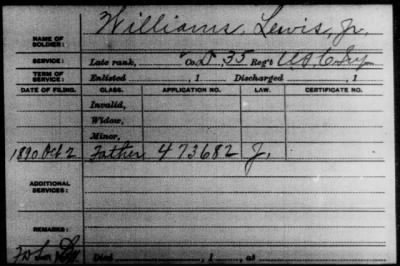 NAME OF SOLDIER: Williams, Lewis, Jr.
SERVICE: Late rank, Co. D, 35 Reg't U.S.C. Inf.
TERM OF SERVICE: Enlisted , 1 Discharged , 1
DATE OF FILING. CLASS. APPLICATION NO. LAW. CERTIFICATE NO.
Invalid,
Widow,
Minor,
1890 Oct 2 Father 473682 J.
ADDITIONAL SERVICES:
REMARKS:
Died , 1 , at